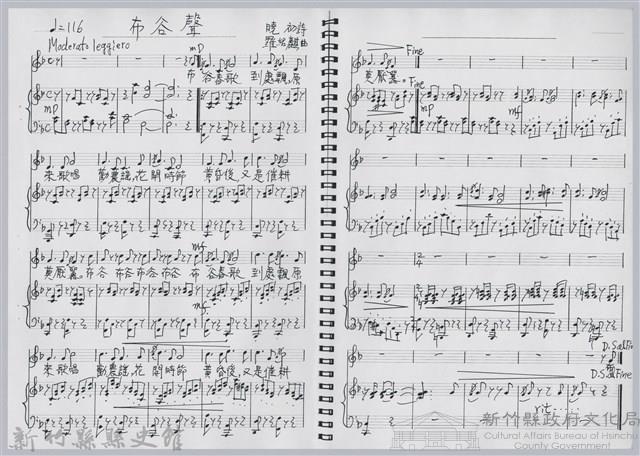 ♩=116
布谷聲
Moderato leggiero
曉初詩
羅松麒曲
mp
mp
布谷春歌 到處親原
來歌唱 勸農謠,花開時節 黃昏後,又是催耕
mf
莫厭嚣.布谷 布谷布谷布谷 布谷春歌 到處親原
mf
來歌唱 勸農謠,花開時節 黃昏後,又是催耕
Fine
莫厭嚣.
Fine
mp
mf
D.S.alFin
D.S.alFine
rit
新竹縣縣史館
新竹縣政府文化局
Cultural Affairs Bureau of Hsinchu
County Government